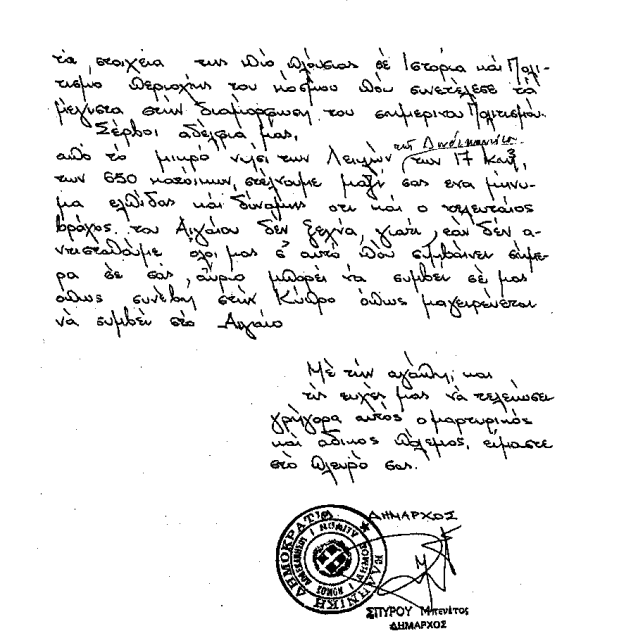 τα στοιχεία της πιο πλούσιας σε Ιστορία και Πολι-
τισμό περιοχής του κόσμου που συνετέλεσε τα
μέγιστα στην διαμόρφωση του σημερινού Πολιτισμού.
Σέρβοι αδέλφια μας,
της Δωδεκανήσου
από το μικρό νησί των Λειψών των 17 km²,
των 650 κατοίκων, στέλνουμε μαζί σας ενα μηνυ-
μα ελπίδας και δύναμης οτι και ο τελευταίος
βράχος του Αιγαίου δεν ξεχνά, γιατί, εάν δεν α-
ντισταθούμε όλοι μας σ' αυτό που συμβαίνει σήμε-
ρα σε σας, αύριο μπορεί να συμβεί σε μας
όπως συνέβη στην Κύπρο όπως μαγειρεύεται
να συμβεί στο Αιγαίο
Με την αγάπη, και
τις ευχές μας να τελειώσει
γρήγορα αυτός ο μαρτυρικός
και άδικος πόλεμος, είμαστε
στο πλευρό σας.
ΔΗΜΑΡΧΟΣ
ΕΛΛΗΝΙΚΗ ΔΗΜΟΚΡΑΤΙΑ
ΝΟΜΟΣ ΔΩΔΕΚΑΝΗΣΟΥ
ΣΠΥΡΟΥ Μπενέτος
ΔΗΜΑΡΧΟΣ